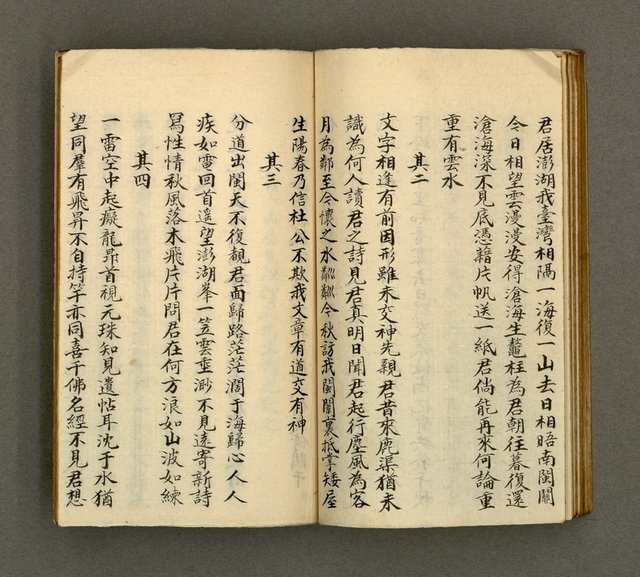 君居澎湖我臺灣相隔一海復一山去日相晤南閩關
今日相望雲漫漫安得滄海生鼇柱為君朝往暮復還
滄海深不見底憑藉片帆送一紙君倘能再來何論重
重有雲水
其二
文字相逢有前因形雖未交神先親君昔來鹿渠猶未
識為何人讀君之詩見君真明日聞君起行塵風為客
月為鄰至今懷之水粼粼今秋訪我閩闈裏抵掌矮屋
生陽春乃信杜公不欺我文章有道交有神
其三
分道出閩天不復覩君面歸路茫茫濶于海歸心人人
疾如雷回首遥望澎湖峯一笠雲垂渺不見遠寄新詩
寫性情秋風落木飛片片問君在何方浪如山波如練
其四
一雷空中起癡龍昂首視元珠知見遺帖耳沈于水猶
望同羣有飛昇不自持竿亦同喜千佛名經不見君想